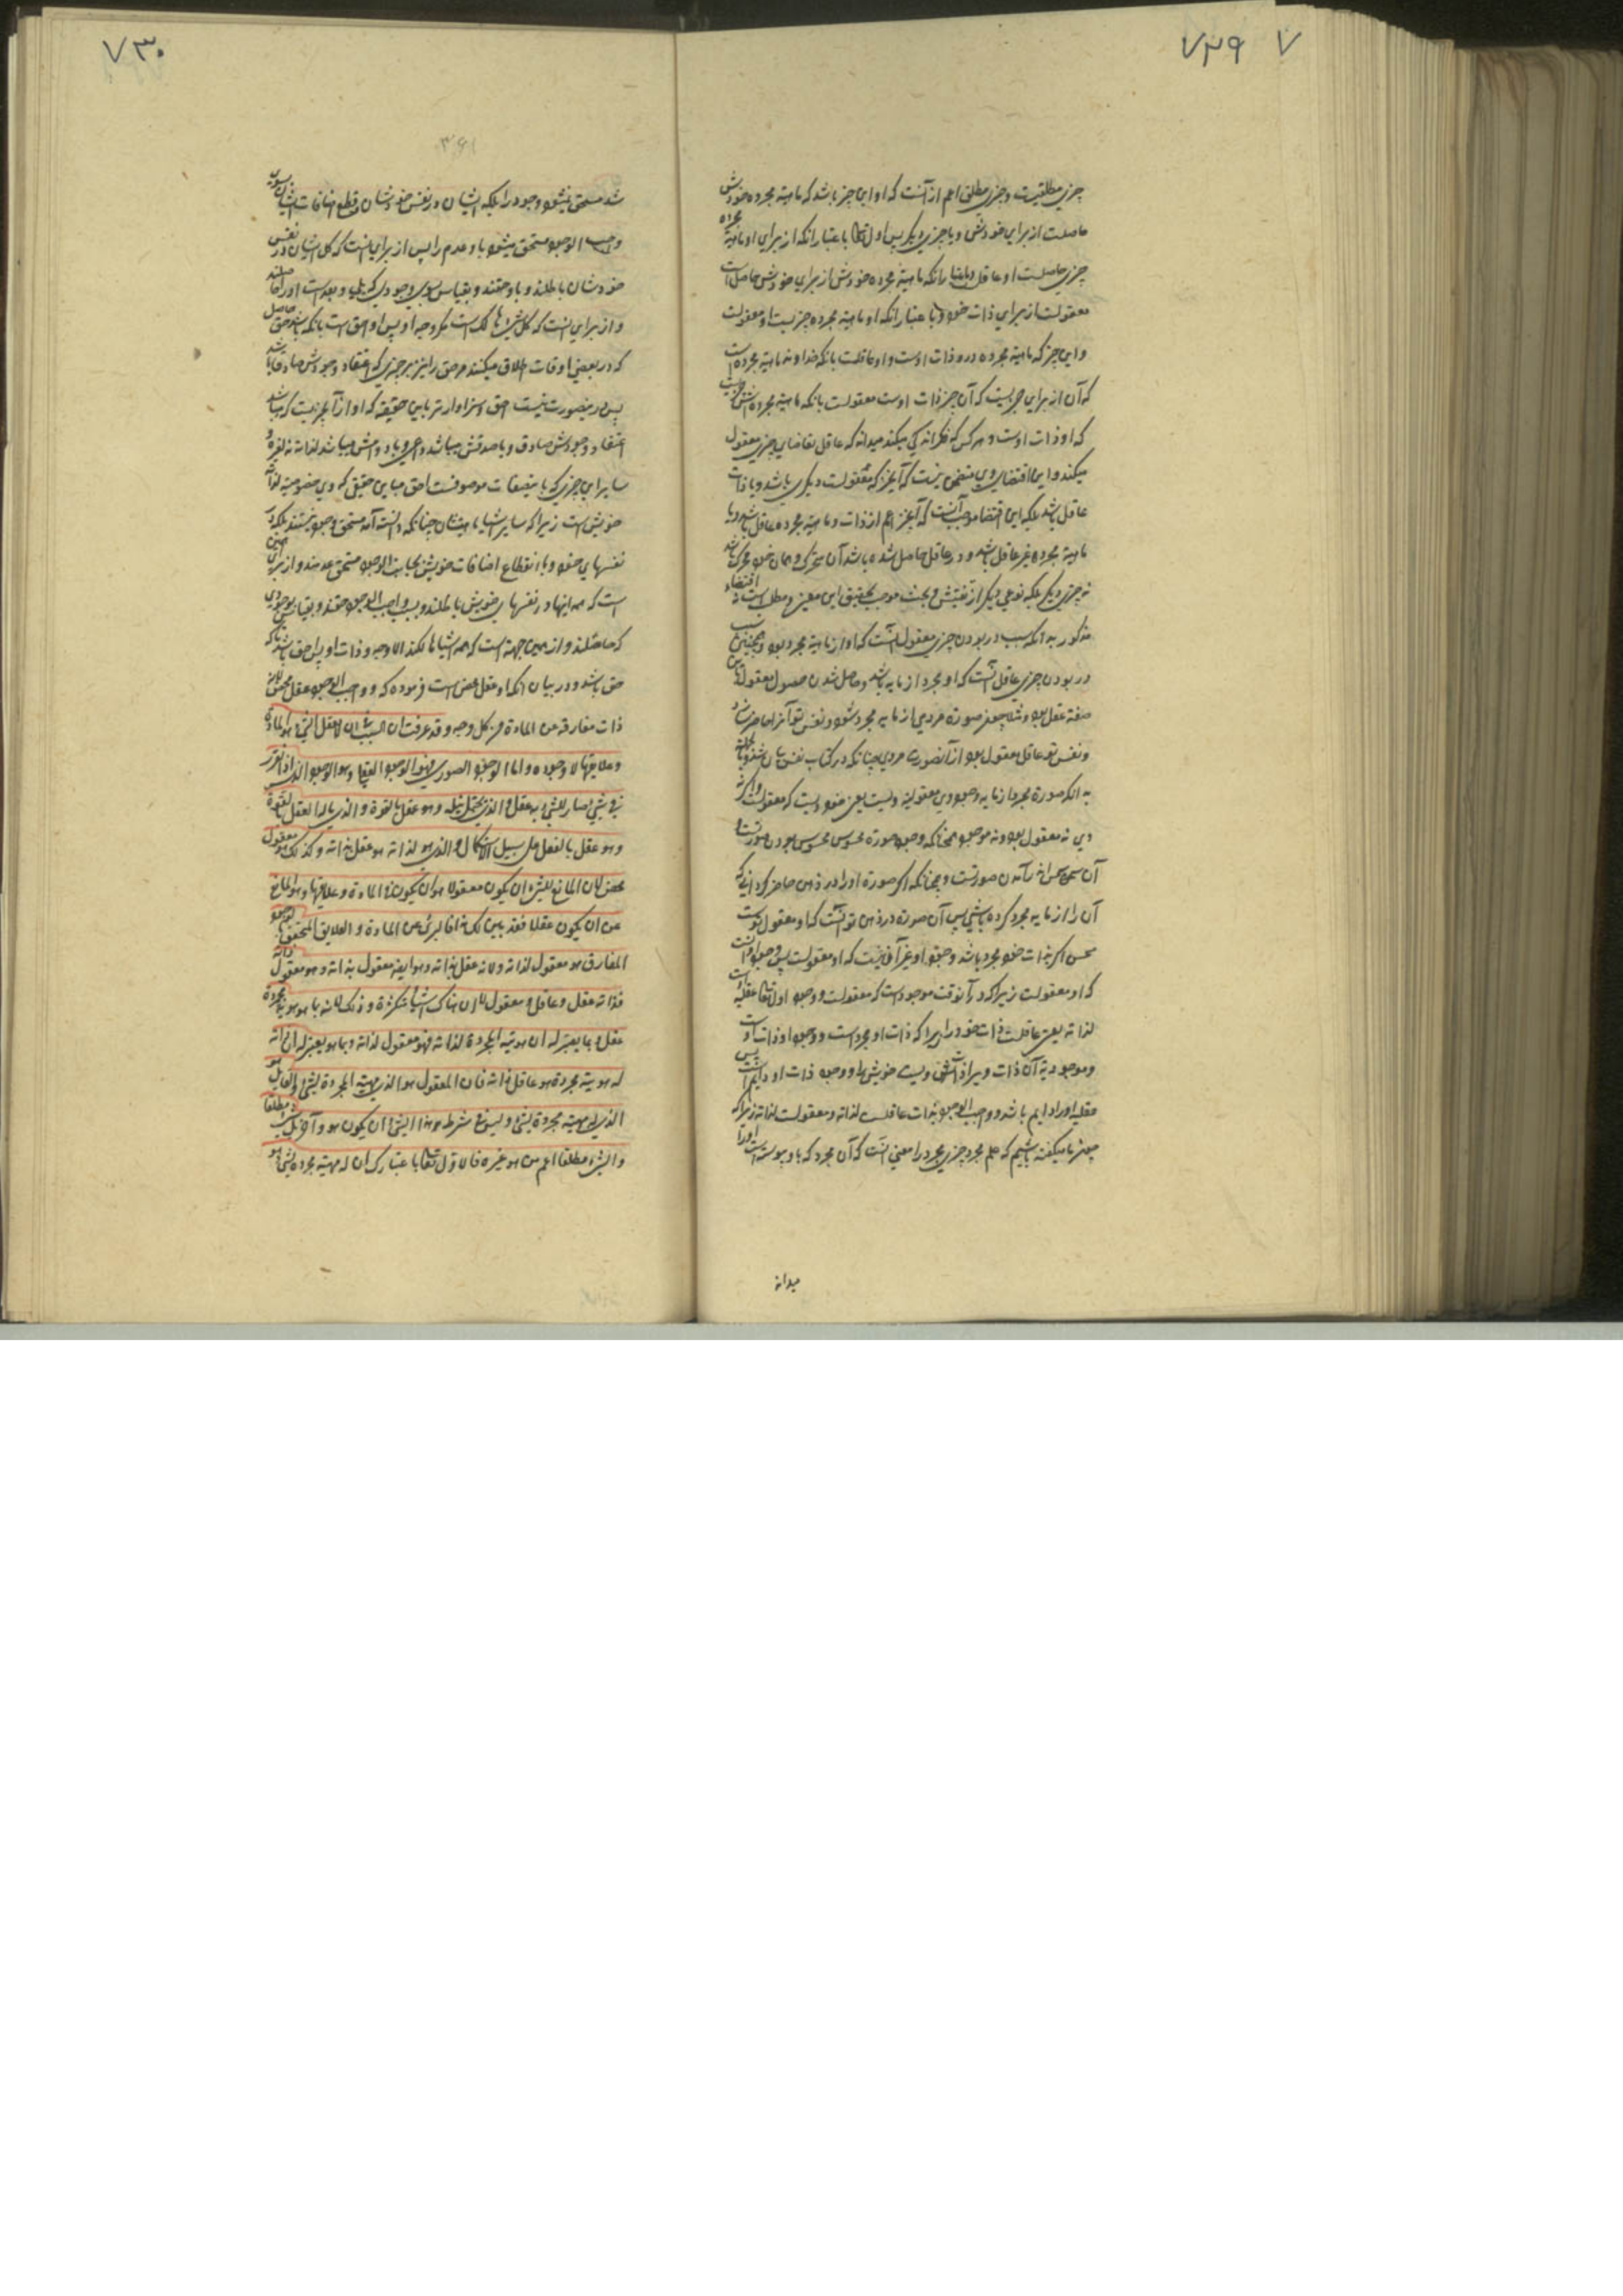 ٧٢٩ ٧
چیزی مطلقیست و چیزی مطلق اعم از آنست که او این چیز باشد که ماهیة مجرده خودش
حاصلست از برای خودش و یا چیزی دیگر پس اول تعالی باعتبار آنکه از برای او ماهیة مجرده
چیزی حاصلست او عاقل و باعتبار آنکه ماهیة مجرده خودش از برای خودش حاصل است
معقولست از برای ذات خود و با عتبار آنکه او ماهیة مجرده چیزیست او معقولست
و این چیز که ماهیة مجرده در و ذات اوست و او عاقلست بانکه خداوند ماهیة مجرده است
که آن از برای چیزیست که آن چیز ذات اوست معقولست بانکه ماهیة مجرده اش
که او ذات اوست و هر کس که فکر اندکی میکند میداند که عاقل تقاضای چیزی معقول
میکند و این اقتضای وی متضمن نیست که آن چیز که معقولست دیگری باشد و یا ذات
عاقل باشد بلکه این اقتضا موجب آنست که آن چیز اعم از ذات و ماهیة مجرده عاقل باشد و یا
ماهیة مجرده غیر عاقل باشد و در عاقل حاصل شده باشد آن متحرک و همان خود محرک باشد
نه چیزی دیگر بلکه نوعی دیگر از تفتیش و بحث موجب تحقیق این معنی و مطلب است نه اقتضاء
مذکور به آنکه سبب در بودن چیزی معقول آنست که او از ماهیة مجرد بود و همچنین سبب
در بودن چیزی عاقل آنست که او مجرد از مایه باشد و حاصل شدن حصول معقول
صفة عقل بود و مثلا چون صورة مردی از مایه مجرد شود و نفس تو آنرا حاضر سازد
و نفس تو عاقل معقول بود از آنصورت مردی چنانکه در کتاب نفس بیان شد
به آنکه صورة مجرد از مایه وجود وی معقولیة ویست یعنی خود ویست که معقولست و اگر نه
وی نه معقول بود و نه موجود همچنانکه وجود صورة محسوس محسوس بودن صورتست و
آن صورتست و همچنانکه اگر صورة او را در ذهن حاضر کردانی که
آن را از مایه مجرد کرده باشی پس آن صورة در ذهن تو آنست که او معقول توست
محسن اگر بذات خود مجرد باشد وجود او غیر آن نیست که او معقولست پس وجود او آنست
که او معقولست زیرا که در آنوقت موجود است که معقولست و وجود اول تعالی عقلیه است
لذاته یعنی عاقلست ذات خود را زیرا که ذات او مجرد است و وجود او ذات او است
و موجودیة آن ذات ویرا ذات خویش را و وجود ذات او دایم است پس
عقلیه او را دایم باشد و واجب الوجود بذات عاقلست لذاته و معقولست لذاته زیرا که
چون ما میکفته باشیم که علم مجرد چیزی مجرد را معنی آنست که آن مجرد که باو پیوسته است او را
میدانه
٧٣٠
٣٦١
شد مستحق نمیشود وجود را بلکه ایشان در نفس خودشان و قطع اضافات ایشان بسوی
واجب الوجود مستحق میشود باو عدم را پس از برای اینست که کل ایشان در نفس
خودشان باطلند و باو حقند و بقیاس بسوی وجودی که یلیه و بعد است او را حاصلند
و از برای اینست که کل شیء هالک است مگر وجه او پس او احق است بانکه باشد حق حاصل
که در بعضی اوقات اطلاق میکنند مر حق را نیز بر چیزی که اعتقاد وجودش صادق باشد
پس در ینصورت نیست احق و سزاوارتر باین حقیقه که او از آن چیزیست که میباشد
اعتقاد وجودش صادق و با صدقش میباشد دایمی و با دوامش میباشد لذاته نه لغیره و
سایر این چیزی که باینصفات موصوفست احق مباین حقیقی که وی مخصوصیة لذاته
خویش است زیرا که سایر اشیاء ماهیتشان چنانکه دانسته آمد مستحق وجود نیستند بلکه در
نفسهای خود و با انقطاع اضافات خویش بجانب واجب الوجود مستحق عدمند و از برای همین
است که همه اینها در نفسهای خویش باطلند و بسبب واجب الوجود حقند و بقیاس بوجودی
که حاصلند و از همین جهة است که همه اشیاء هالکند الا وجه و ذات او پس احق باشد باکه
حق باشد و در بیان آنکه او عقل محض است فرموده که و واجب الوجود عقل محض لانه
ذات مفارقة عن المادة من کل وجه و قد عرفت ان السبب فی ان لا یعقل الشیء هو المادة
و علایقها لا وجوده و اما الوجود الصوری فهو الوجود العقلی و هو الوجود الذی اذا تقرر
فی شیء صار للشیء به عقل و الذی یحتمل نیله و هو عقل بالقوة و الذی ناله بعد القوة
و هو عقل بالفعل علی سبیل الاستکمال و الذی هو لذاته هو عقل بذاته و کذلک هو معقول
محض لان المانع للشیء ان یکون معقولا هو ان یکون فی المادة و علایقها و هو المانع
عن ان یکون عقلا فقد تبین لک هذا فالبریء عن المادة و العلایق المتحقق بالوجود
المفارق هو معقول لذاته و لانه عقل بذاته و هو ایضا معقول بذاته و هو معقول ذاته
فذاته عقل و عاقل و معقول لا ان هناک اشیاء متکثرة و ذلک لانه بما هو هویة مجردة
عقل و بما یعتبر له ان هویته المجردة لذاته فهو معقول لذاته و بما هو یعتبر له ان ذاته
له هویة مجردة هو عاقل ذاته فان المعقول هو الذی ماهیته المجردة لشیء و العاقل هو
الذی له ماهیة مجردة لشیء و لیس من شرط هذا الشیء ان یکون هو و آخر بل شیء مطلقا
و الشیء مطلقا اعم من هو غیره فالاول تعالی باعتبارک ان له ماهیة مجردة لشیء هو